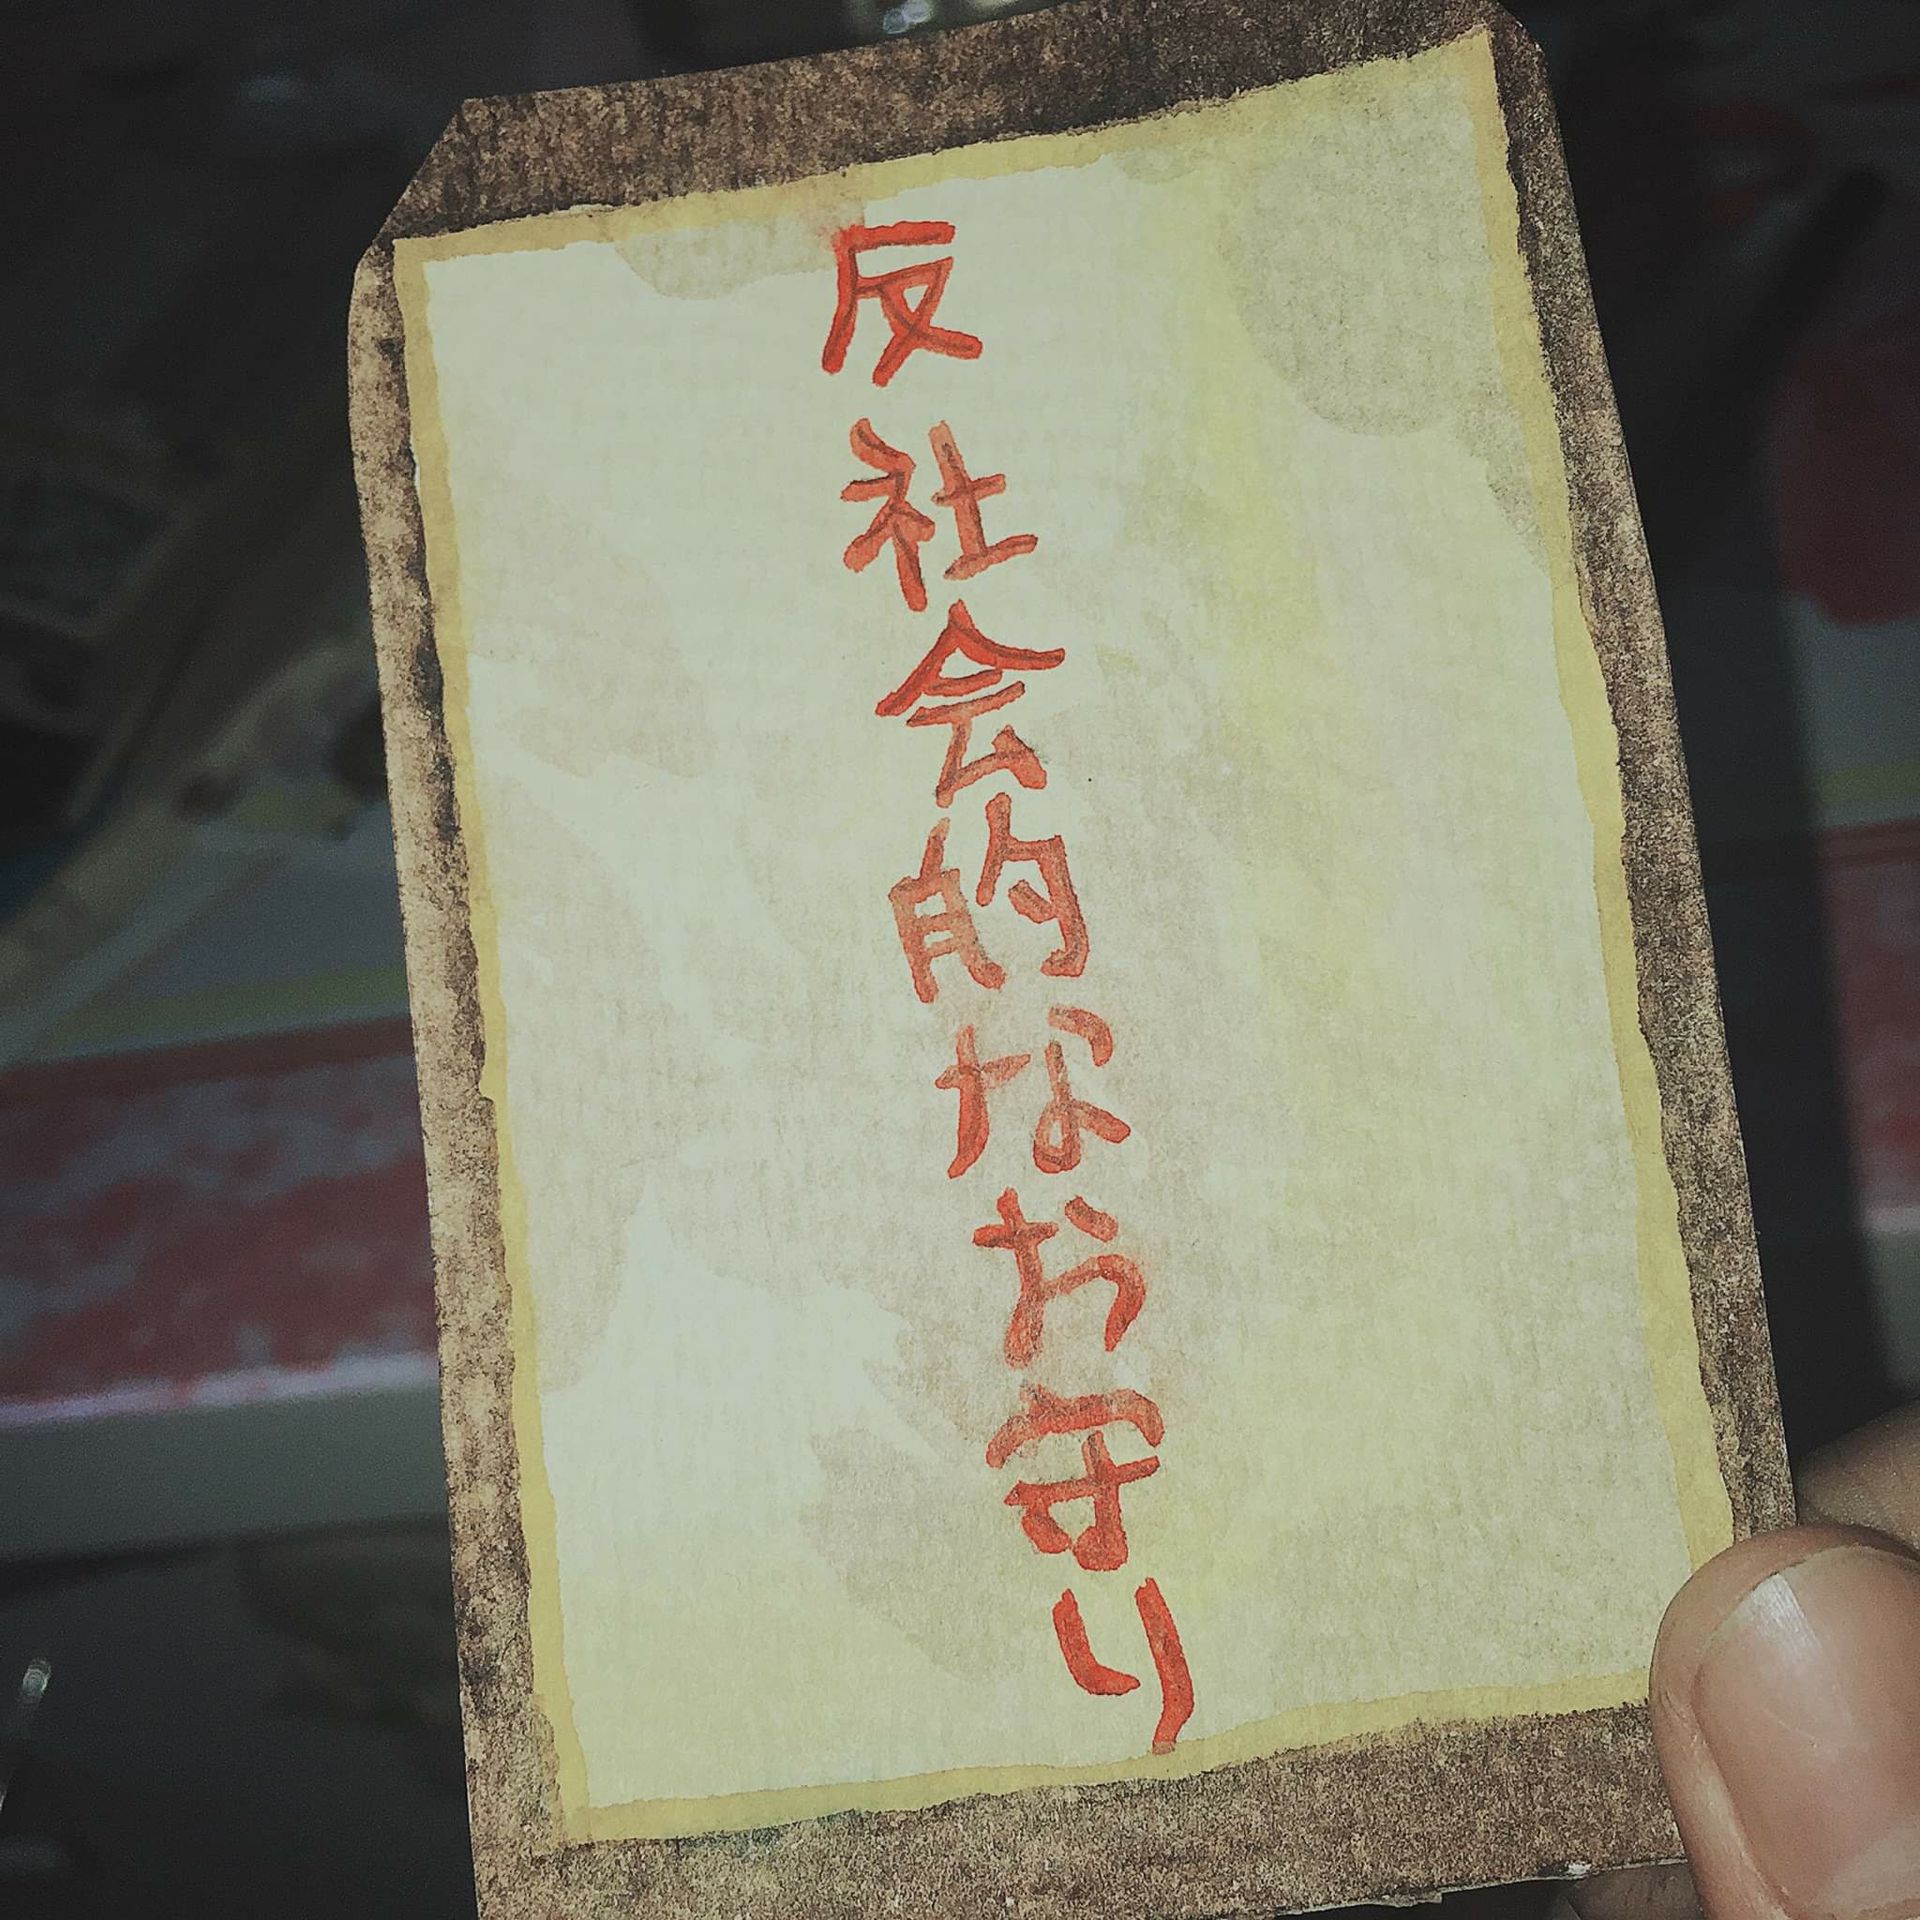 反社会的なお守り